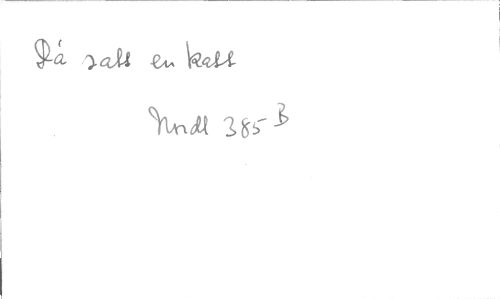 Då satt en katt
Nordl 385 B